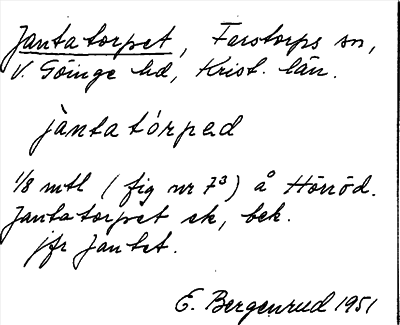 Jantatorpet, Farstorps sn,
V. Göinge hd, Krist. län.
jàntatórpəd
1/8 mtl (fig nr 7³) å Hörröd.
Jantatorpet ek, bek.
jfr Jantet.
E. Bergenrud 1951